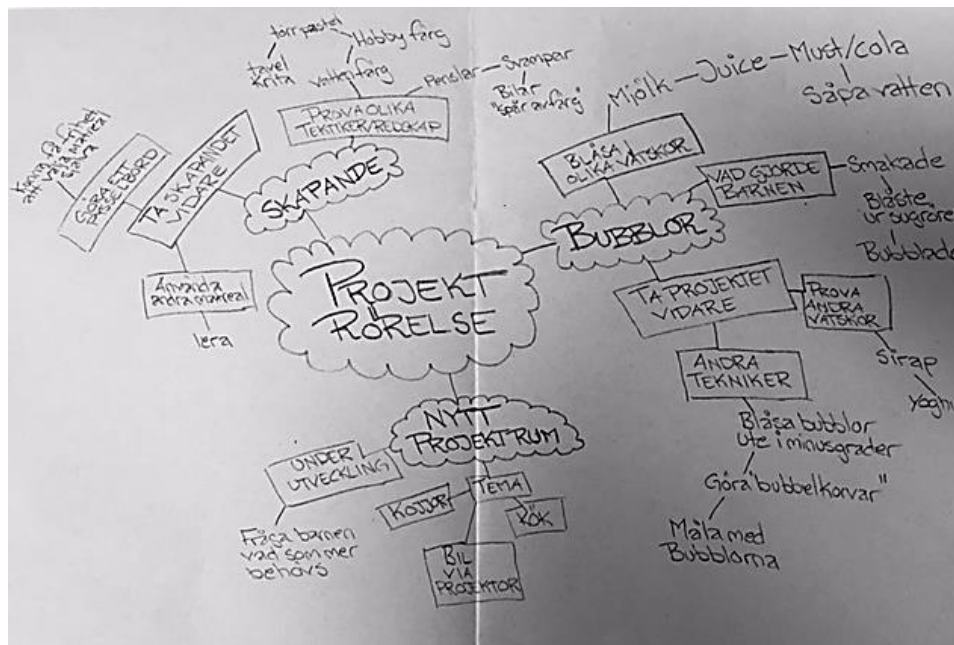 PROJEKT
RÖRELSE
SKAPANDE
PROVA OLIKA
TEKTIKER/REDSKAP
vattenfärg
Hobby färg
törrpastel
tavel
krita
Penslar
Svampar
Bilar
"spår av färg"
TA SKAPANDET
VIDARE
GÖRA ETT
PASSELBORD
att välja matreal
själva
Använda
andra matreal
lera
BUBBLOR
BLÅSA
OLIKA VÄTSKOR
Mjölk
Juice
Must/cola
Såpa vatten
VAD GJORDE
BARNEN
Smakade
Blåste
ur sugröre
Bubblade
TA PROJEKTET
VIDARE
PROVA
ANDRA
VÄTSKOR
Sirap
Yoghu
ANDRA
TEKNIKER
Blåsa bubblor
ute i minusgrader
Göra "bubbelkorvar"
Måla med
Bubblorna
NYTT
PROJEKTRUM
UNDER
UTVECKLING
Fråga barnen
vad som mer
behövs
TEMA
KOJJOR
RÖK
BIL
VIA
PROJEKTOR